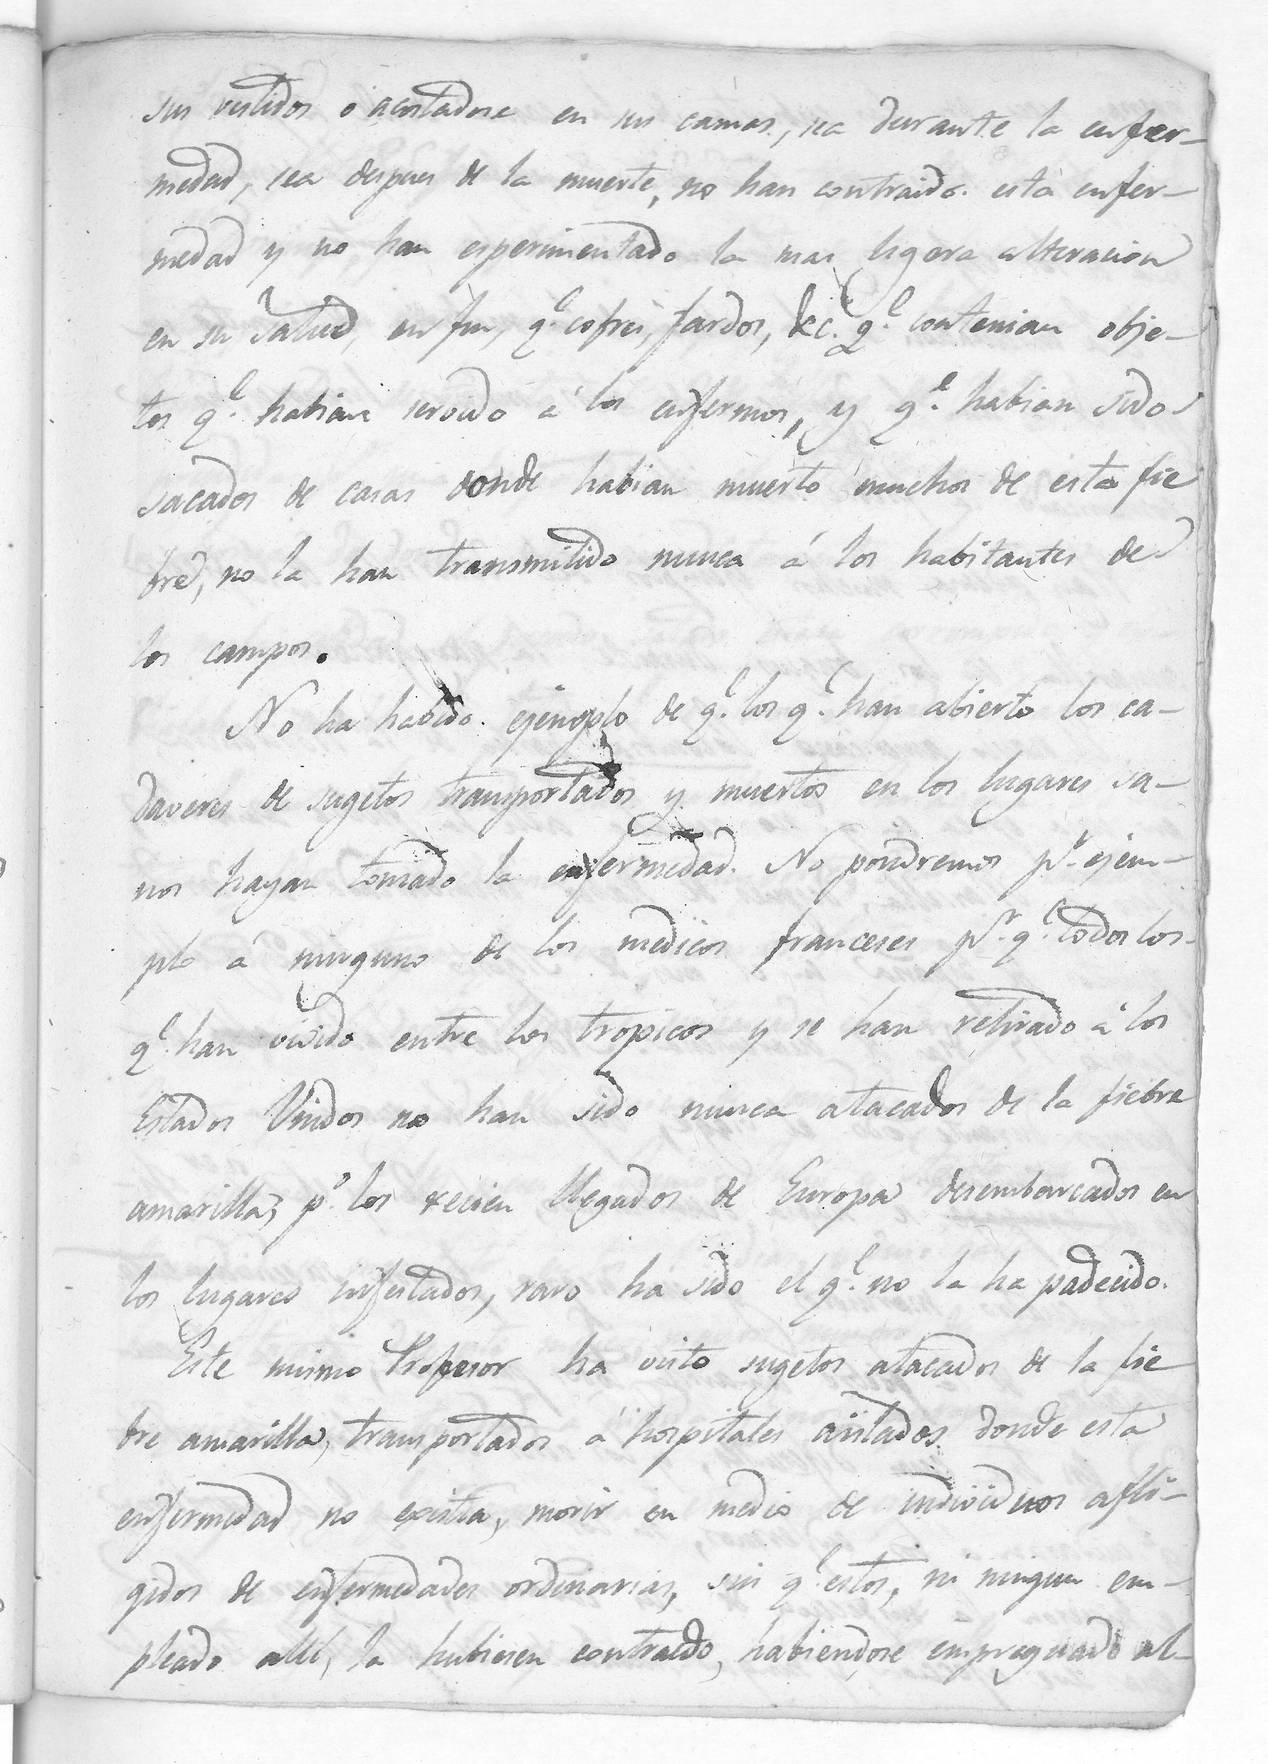 sus vestidos o acostadose en sus camas, sea durante la enfer-
medad, sea despues de la muerte, no han contraido esta enfer-
medad y no han esperimentado la mas ligera alteracion
en su salud, en fin, q.e cofres, fardos, &c. q.e contenian obje-
tos q.e habian servido á los enfermos, y q.e habian sido
sacados de casas donde habian muerto muchos de esta fie
bre, no la han transmitido nunca á los habitantes de
los campos.
No ha habido ejemplo de q.e los q.e han abierto los ca-
daveres de sugetos transportados y muertos en los lugares sa-
nos hayan tomado la enfermedad. No pondremos p.r ejem-
plo á ninguno de los medicos franceses p.r q.e todos los
q.e han vivido entre los tropicos y se han retirado á los
Estados Unidos no han sido nunca atacados de la fiebre
amarilla; p.o los recien llegados de Europa desembarcados en
los lugares infestados, raro ha sido el q.e no la ha padecido.
Este mismo Profesor ha visto sugetos atacados de la fie
bre amarilla, transportados á hospitales aislados donde esta
enfermedad no existia, morir en medio de individuos afli-
gidos de enfermedades ordinarias, sin q.e estos, ni ningun em-
pleado alli, la hubiesen contraido, habiendose impregnado al-